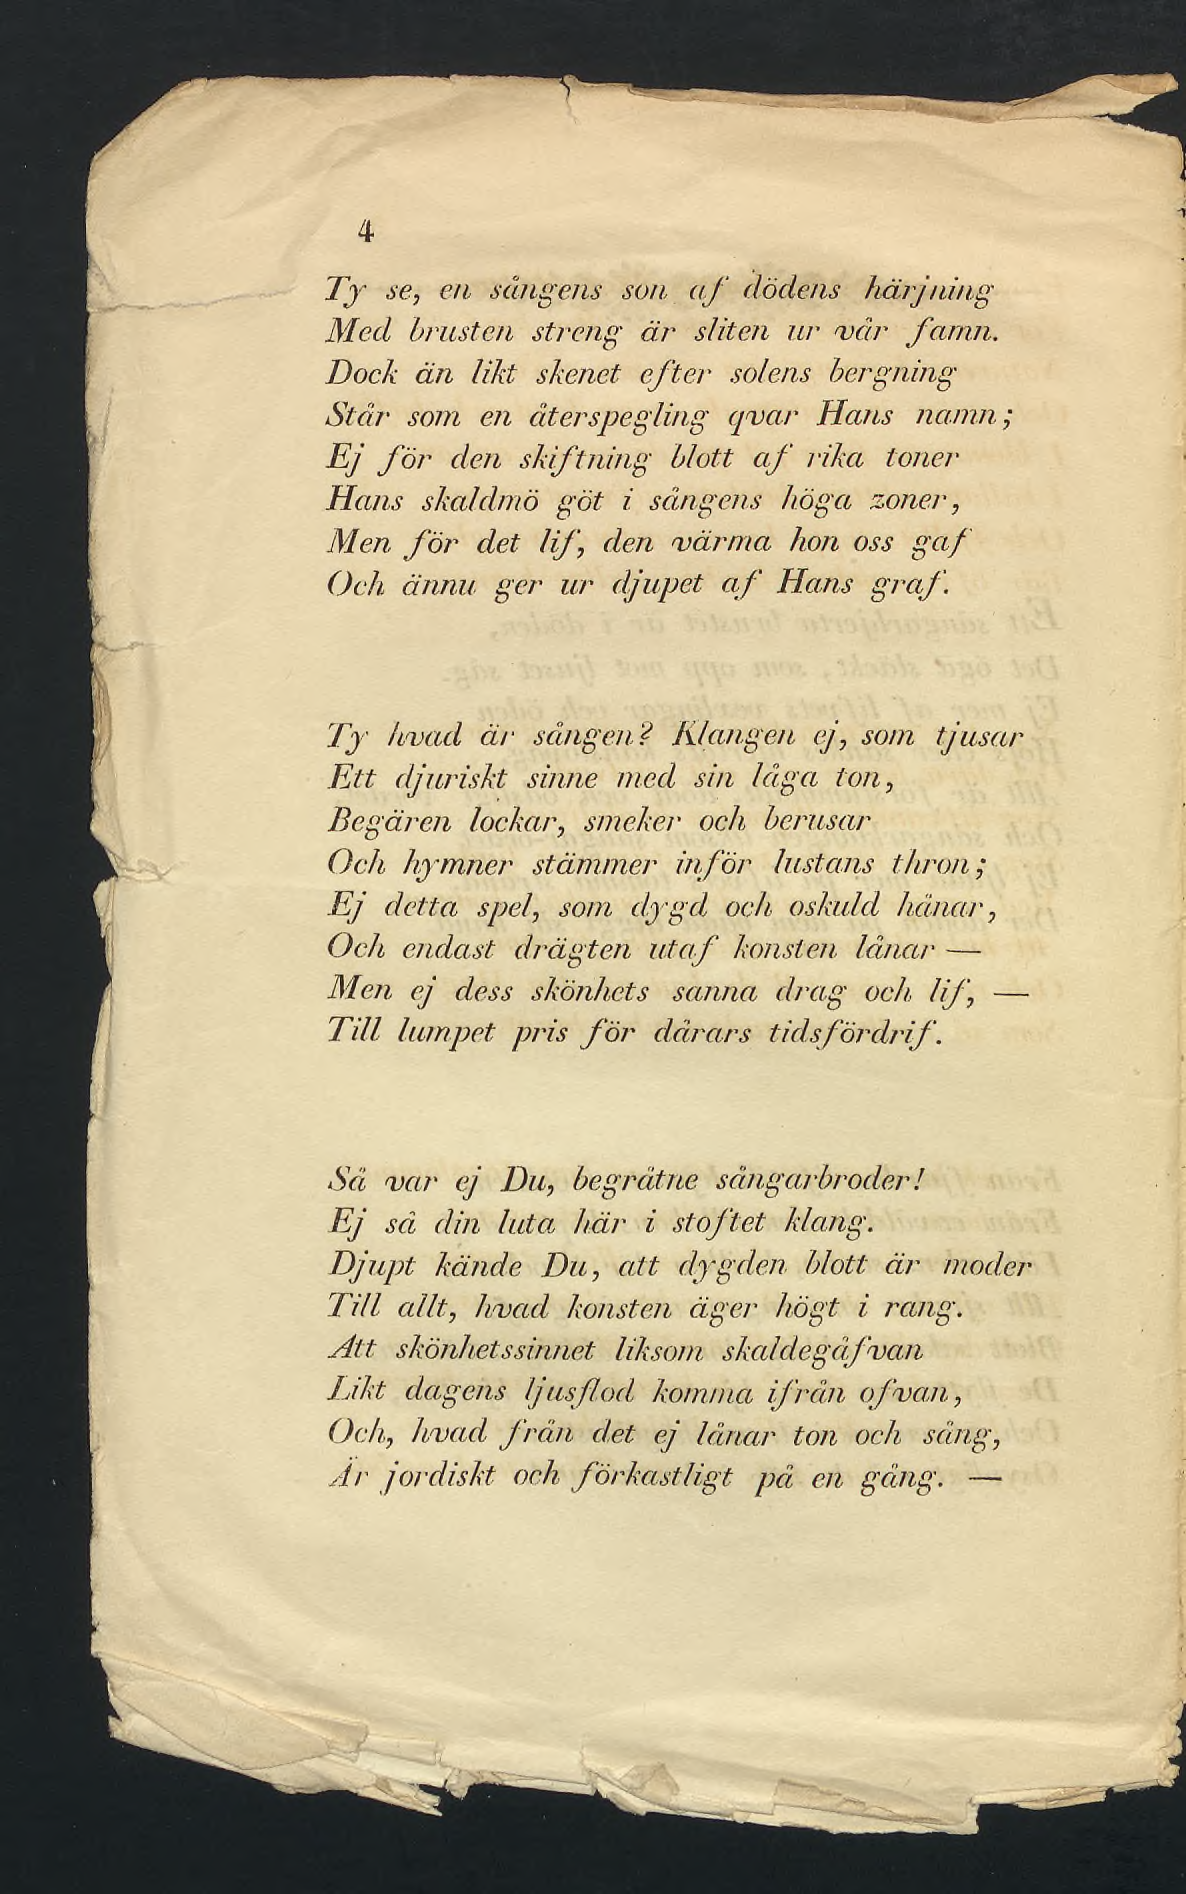 4
Ty se, en sångens son af dödens härjning
Med brusten streng är sliten ur vår famn.
Dock än likt skenet efter solens bergning
Står som en återspegling qvar Hans namn;
Ej för den skiftning blott af rika toner
Hans skaldmö göt i sångens höga zoner,
Men för det lif, den värma hon oss gaf
Och ännu ger ur djupet af Hans graf.
Ty hvad är sången? Klangen ej, som tjusar
Ett djuriskt sinne med sin låga ton,
Begären lockar, smeker och berusar
Och hymner stämmer inför lustans thron;
Ej detta spel, som dygd och oskuld hånar,
Och endast drägten utaf konsten lånar —
Men ej dess skönhets sanna drag och lif, —
Till lumpet pris för dårars tidsfördrif.
Så var ej Du, begråtne sångarbroder!
Ej så din luta här i stoftet klang.
Djupt kände Du, att dygden blott är moder
Till allt, hvad konsten äger högt i rang.
Att skönhetssinnet liksom skaldegåfvan
Likt dagens ljusflod komma ifrån ofvan,
Och, hvad från det ej lånar ton och sång,
Är jordiskt och förkastligt på en gång. —